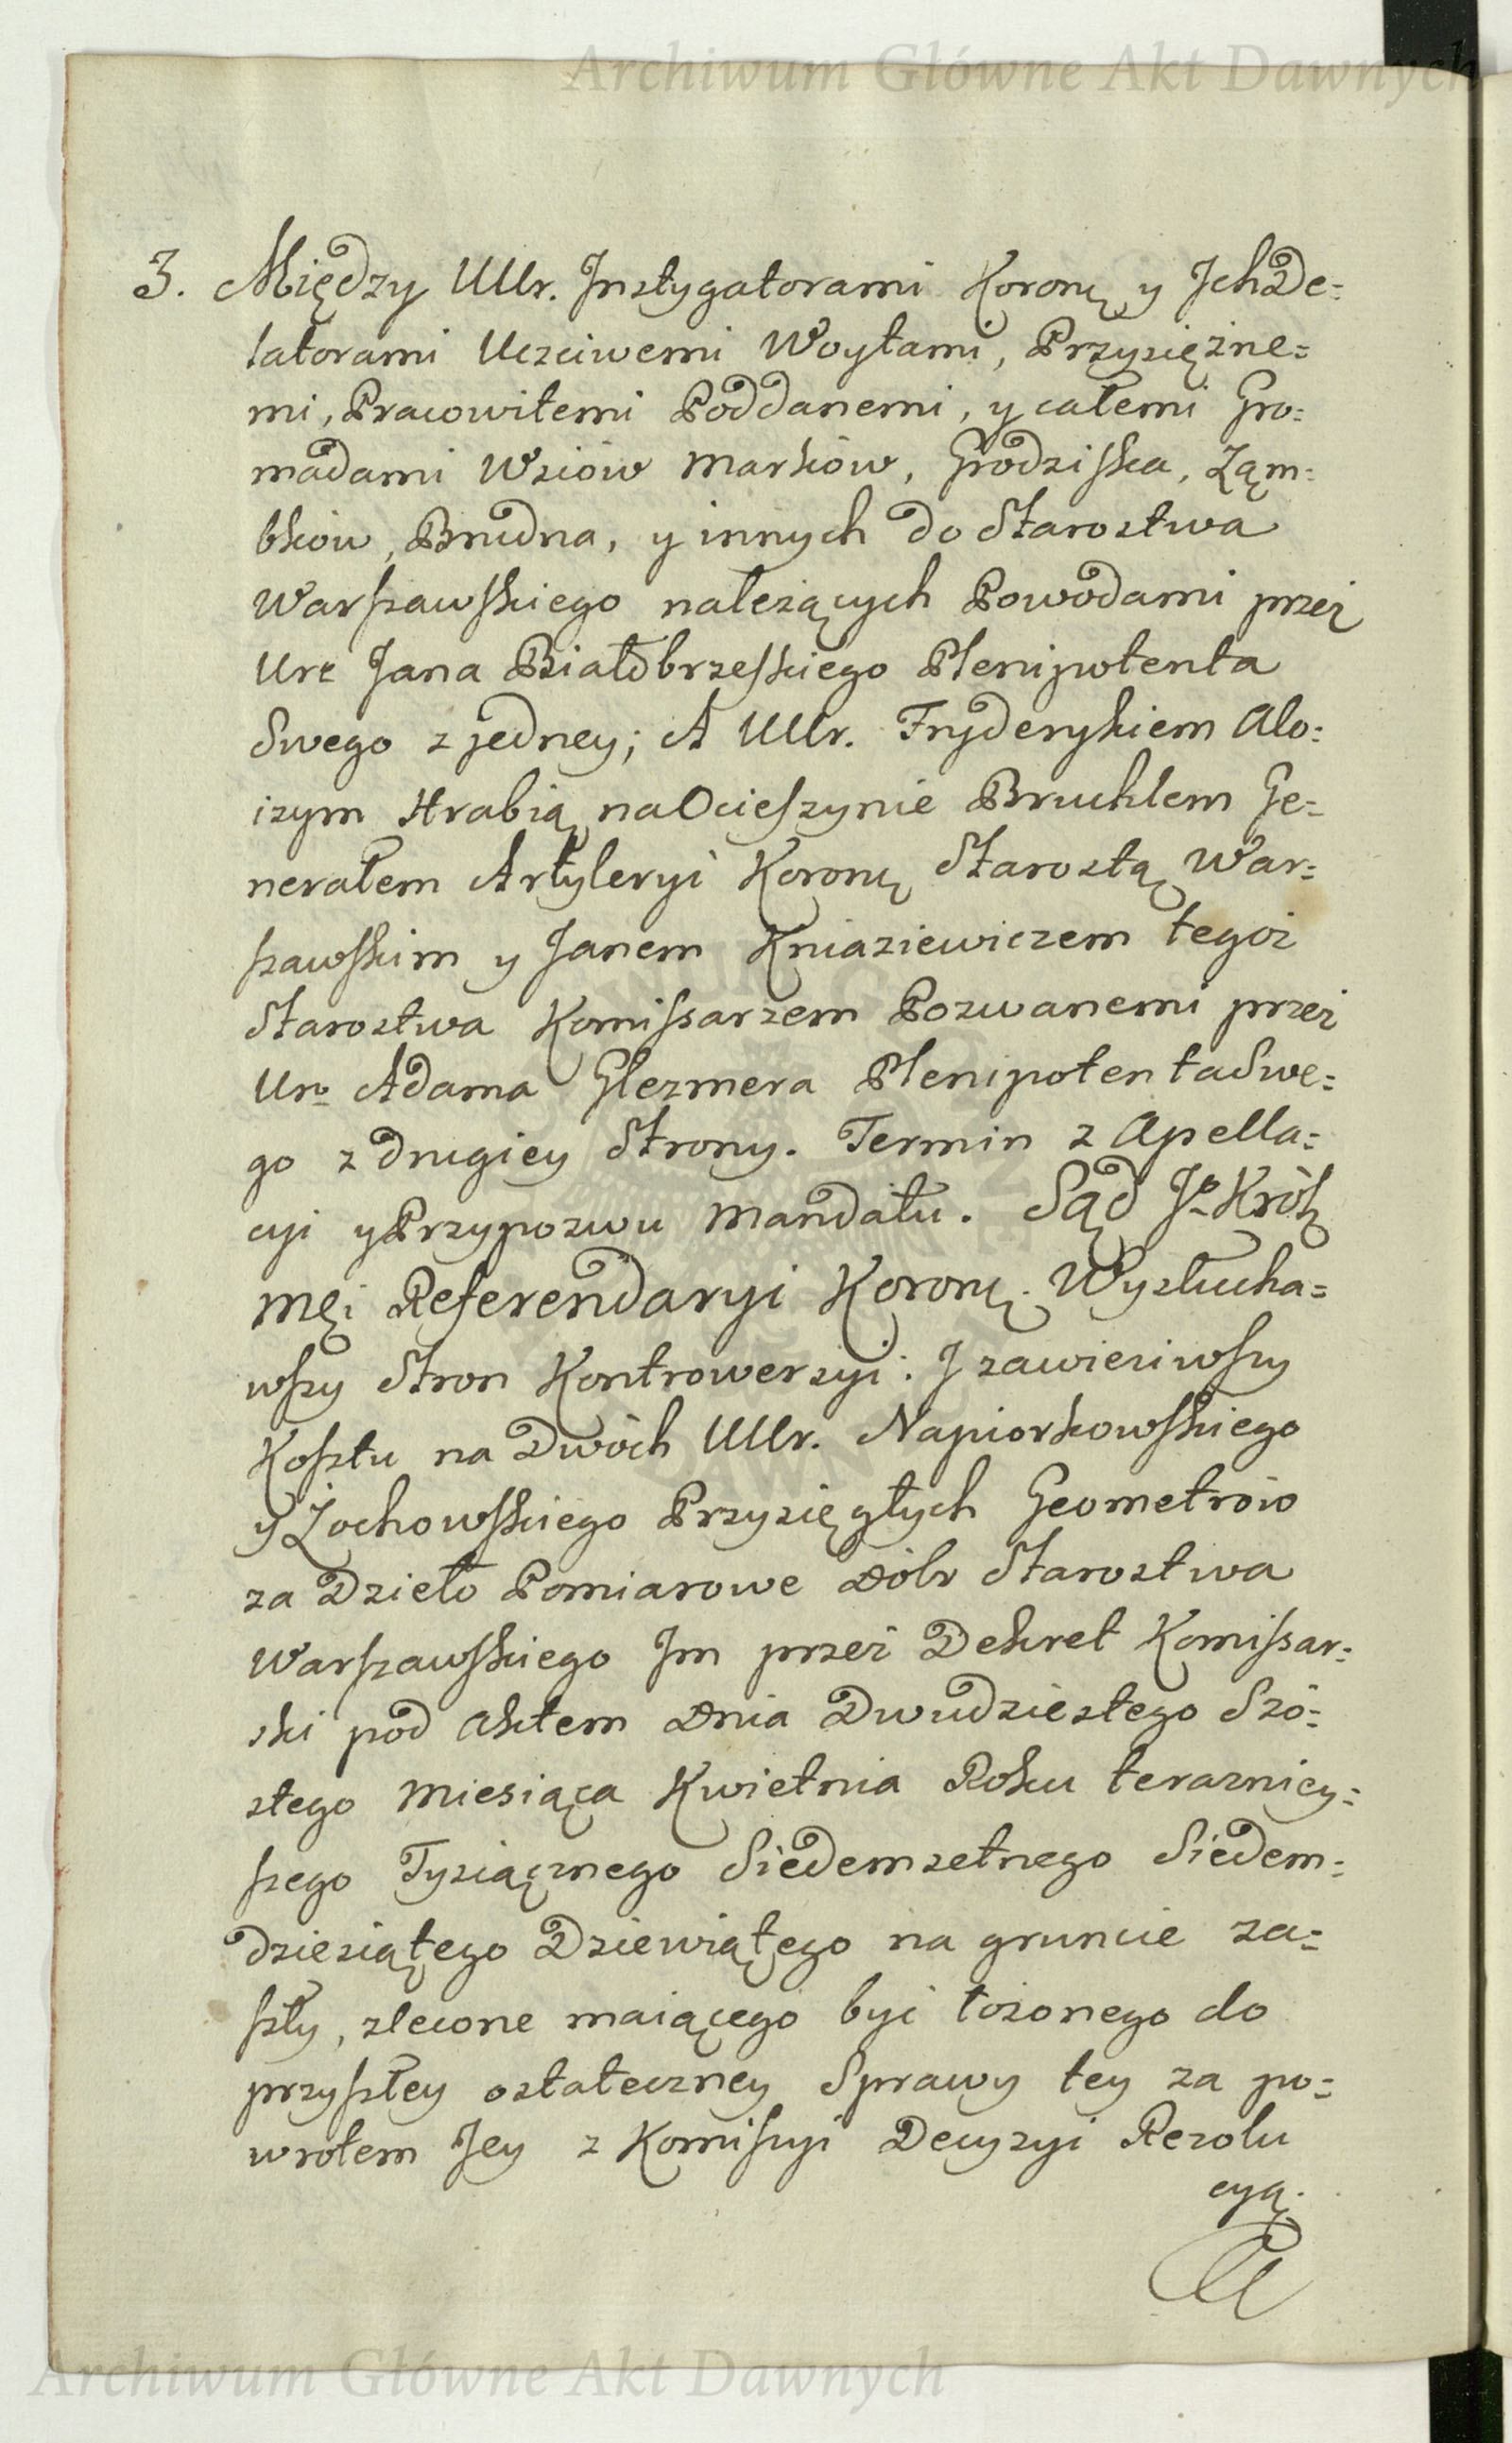 Archiwum Główne Akt Dawnych
3. Między UUr. Instygatorami Koronĕ y Ich De=
latorami Uczciwemi Woytami, Przysiężne=
mi, Pracowitemi Poddanemi, y całemi Gro=
madami Wsiów Marków, Grodziska, Ząm=
bków, Brudna, y innych do Starostwa
Warszawskiego należących Powodami przez
Ur: Jana Białobrzeskiego Plenipotenta
Swego z jedney; A UUr. Fryderykiem Alo=
izym Hrabią na Ocieszynie Bruchlem Ge=
nerałem Artyleryi Koronĕ Starostą War=
szawskim y Janem Kniaziewiczem tegoż
Starostwa Komissarzem Pozwanemi przez
Uro Adama Glezmera Plenipotenta Swe=
go z drugiey Strony. Termin z Apella=
cyi y Przypozwu Mandatu. Sąd Jo Król
mci Referendaryi Koronĕ. Wysłucha=
wszy Stron Kontrowersyi: J zawiesiwszy
Kosztu na Dwóch UUr. Napiorkowskiego
y Żochowskiego Przysięgłych Geometrów
za Dzieło Pomiarowe Dóbr Starostwa
Warszawskiego Im przez Dekret Komissar=
ski pod Aktem Dnia Dwudziestego Szó=
stego Miesiąca Kwietnia Roku terazniey=
szego Tysiącznego Siedemsetnego Siedem=
dziesiątego Dziewiątego na gruncie za=
szły, zlecone maiącego być łożonego do
przyszłey ostateczney Sprawy tey za po=
wrotem Jey z Komissyi Decyzyi Rezolu
cyą.
Archiwum Główne Akt Dawnych